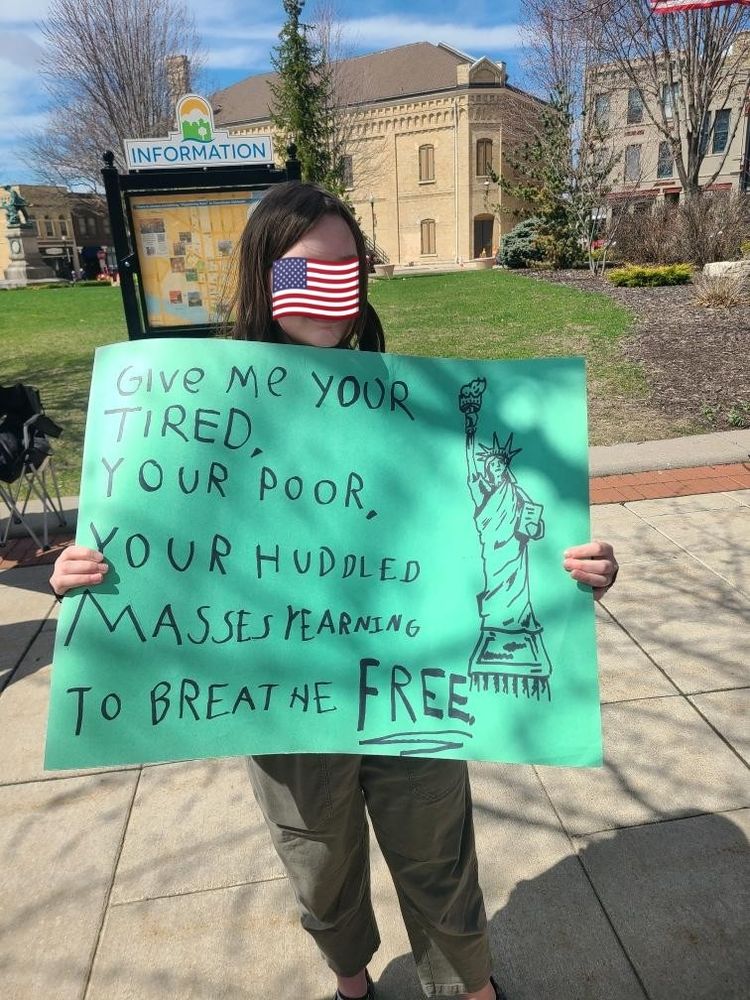 INFORMATION
GIVE ME YOUR
TIRED,
YOUR POOR,
YOUR HUDDLED
MASSES YEARNING
TO BREATHE FREE.